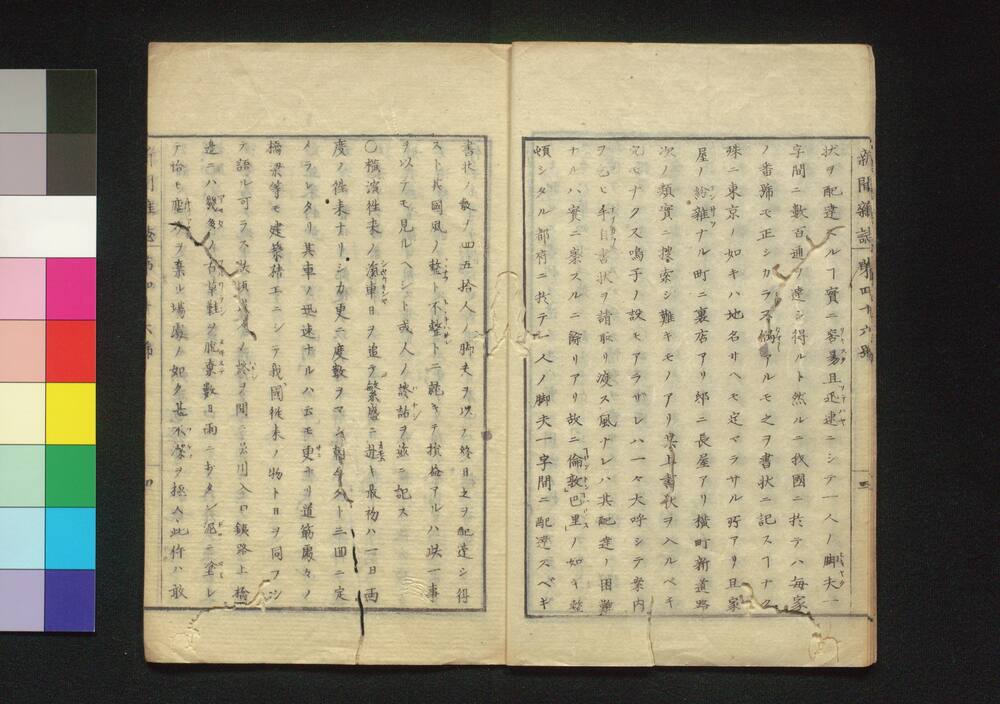 新聞雑誌 第四十六号
三
状ヲ配達スルヿ實ニ容易且迅速ニシテ一人ノ脚夫一
字間ニ數百通ヲ達シ得ルト然ルニ我國ニ於テハ毎家
ノ番號モ正シカラス偶アルモ之ヲ書状ニ記スヿナク
殊ニ東京ノ如キハ地名サヘモ定マラサル所アリ且家
屋ノ紛雑ナル町ニ裏店アリ邸ニ長屋アリ横町新道路
次ノ類實ニ搜索シ難キモノアリ其上書状ヲ入ルベキ
穴モナクス鳴子ノ設モアラザレハ一々大呼シテ案内
ヲ乞ヒ手自書状ヲ請取リ渡ス風ナレハ其配達ノ困難
ナルハ實ニ察スルニ餘リアリ故ニ倫敦巴里ノ如キ整
頓シタル都府ニ於テ一人ノ脚夫一字間ニ配達スベキ
書状ノ數ヲ四五拾人ノ脚夫ヲ以テ終日之ヲ配達シ得
スト其國風ノ整ト不整トニ就キテ損益アルハ此一事
ヲ以テモ見ルベシト或人ノ談話ヲ茲ニ記ス
〇横濱往来ノ滊車日ヲ追テ繁盛ニ赴キ最初ハ一日両
度ノ往来ナリシカ更ニ度數ヲマシ朝夕ト三回ニ定
メラレタリ其車ノ迅速ナルハ云モ更ナリ道筋處々ノ
橋梁等モ建築精エニシテ我國從来ノ物ト日ヲ同フシ
テ語ル可ラス
川入口鐵路上橋
邊ニハ幾多ノ古草鞋ヲ
棄數日雨ニ
泥ニ塗レ
テ恰モ塵
ヲ棄ル場處ノ如ク甚不潔ヲ極ム此所ハ敢